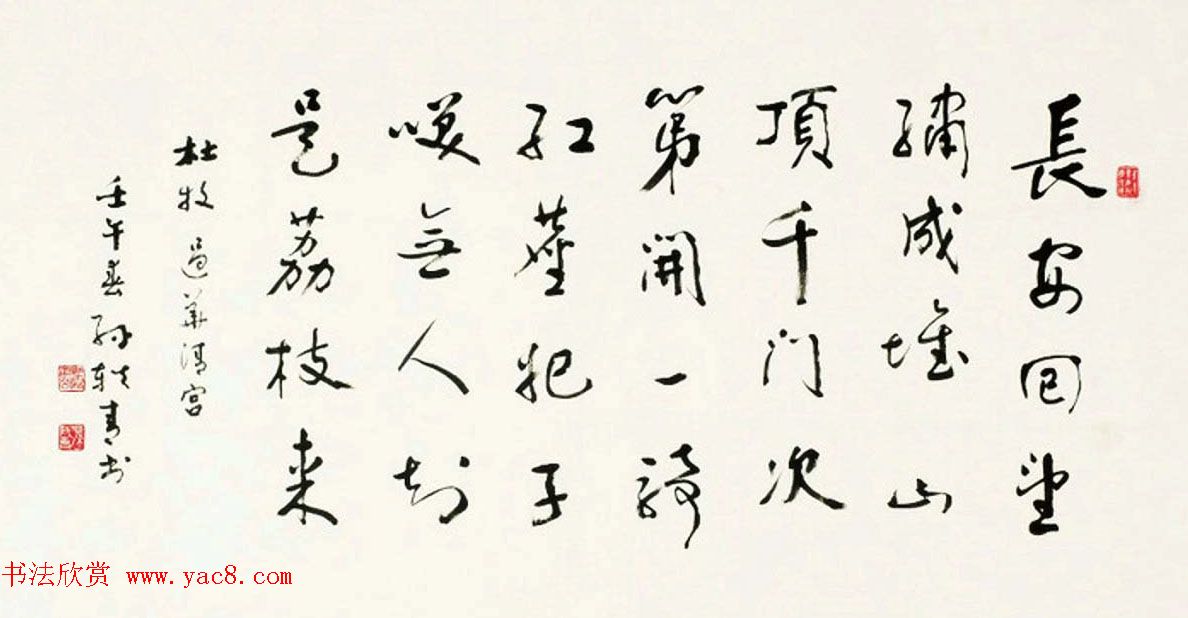 長安回望
繡成堆山
頂千门次
第開一騎
紅塵妃子
咲無人知
是荔枝来
杜牧過華清宫
壬午春孫軼青书
书法欣赏 www.yac8.com